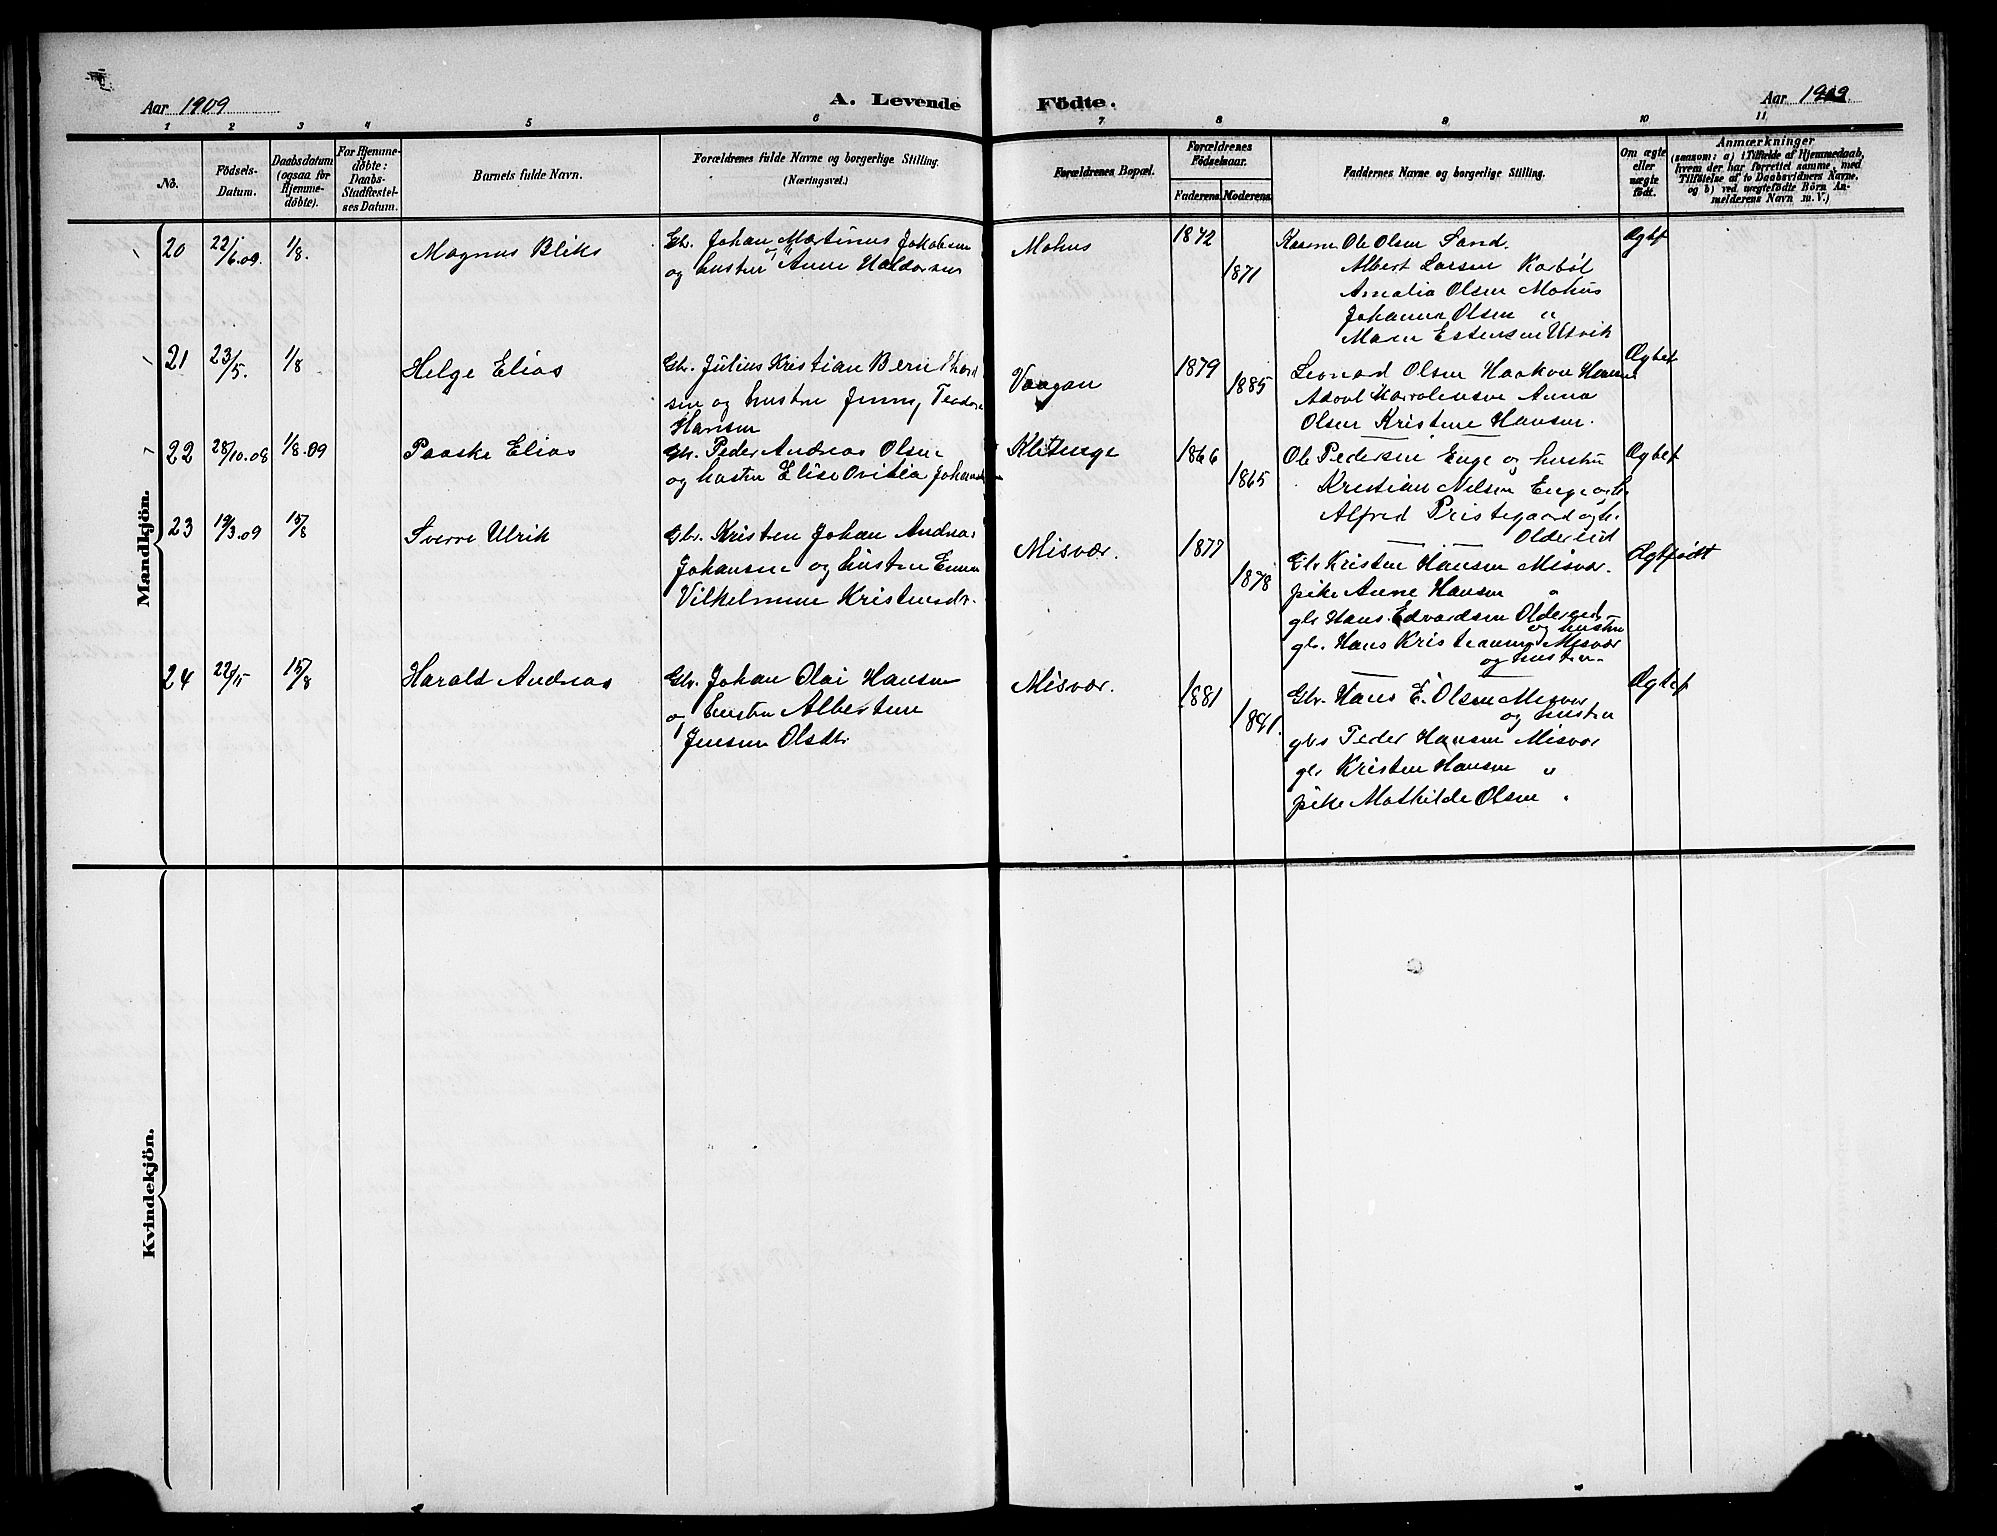 Aar 1909
A. Levende
Födte.
Aar 1909
1 2 3 4 5 6 7 8 9 10 11
No.
Födsels-
Datum.
Daabsdatum
(ogsaa for
Hjemme-
döbte).
For Hjemme-
döbte:
Daabs-
Stadfæstel-
ses Datum.
Barnets fulde Navn.
Forældrenes fulde Navne og borgerlige Stilling.
(Næringsvei.)
Forældrenes Bopæl.
Forældrenes
Födselsaar.
Faderens. Moderens.
Faddernes Navne og borgerlige Stilling.
Om ægte
eller
uægte
födt.
Anmærkninger
(saasom: a) i Tilfælde af Hjemmedaab,
hvem der har forrettet samme, med
Tilföielse af to Daabsvidners Navne,
og b) ved uægtefödte Börn An-
melderens Navn m. V.)
Mandkjön.
20 22/6.09. 1/8. Magnus Bliks
Gbr. Johan Martinus Jakobsen
og hustru Anne Haldorsen
Mohus
1842
1871
Ole Olsen Sand.
Albert Larsen Karbøl
Amalia Olsen Mohus
Johanna Olsen "
Maren Estensen Utvik
Ægtef
21 23/5. 1/8 Helge Elias
Gbr. Julius Kristian Bernthard
sen og hustru Jenny Teodora
Hansen
Vaagan
1879
1885
Leonard Olsen Haakon Hansen
Anna
Olsen Kristine Hansen.
Ægtef
22 28/10.08 1/8.09 Paaske Elias
Gbr. Peder Andreas Olsen
og hustru Elise Ovidia
Klitenge
1866
1865
Ole Pedersen Enge og hustru
Kristian Nilsen Enge og h.
Alfred Prestegaard og h.
Oldereid
Ægtef
23 19/3.09 15/8 Sverre Ulrik
Gbr. Kristen Johan Andreas
Johansen og hustru Emma
Vilhelmine Kristensdr.
Misvær.
1877
1878
Gbr Kristen Hansen Misvær.
pike Anne Hansen "
gbr Hans Edvardsen Oldereid
og hustru
gbr. Hans Kristiansen Misvær
og hustru
Ægtefødt
24 22/5 15/8 Harald Andreas
Gbr. Johan Olai Hansen
og hustru Albertine
Jensine Olsdtr
Misvær.
1881
1881.
Gbr. Hans E. Olsen Misvær
og hustru
gbr Peder Hansen Misvær
gbr Kristen Hansen "
pike Mathilde Olsen "
Ægtef
Kvindekjön.